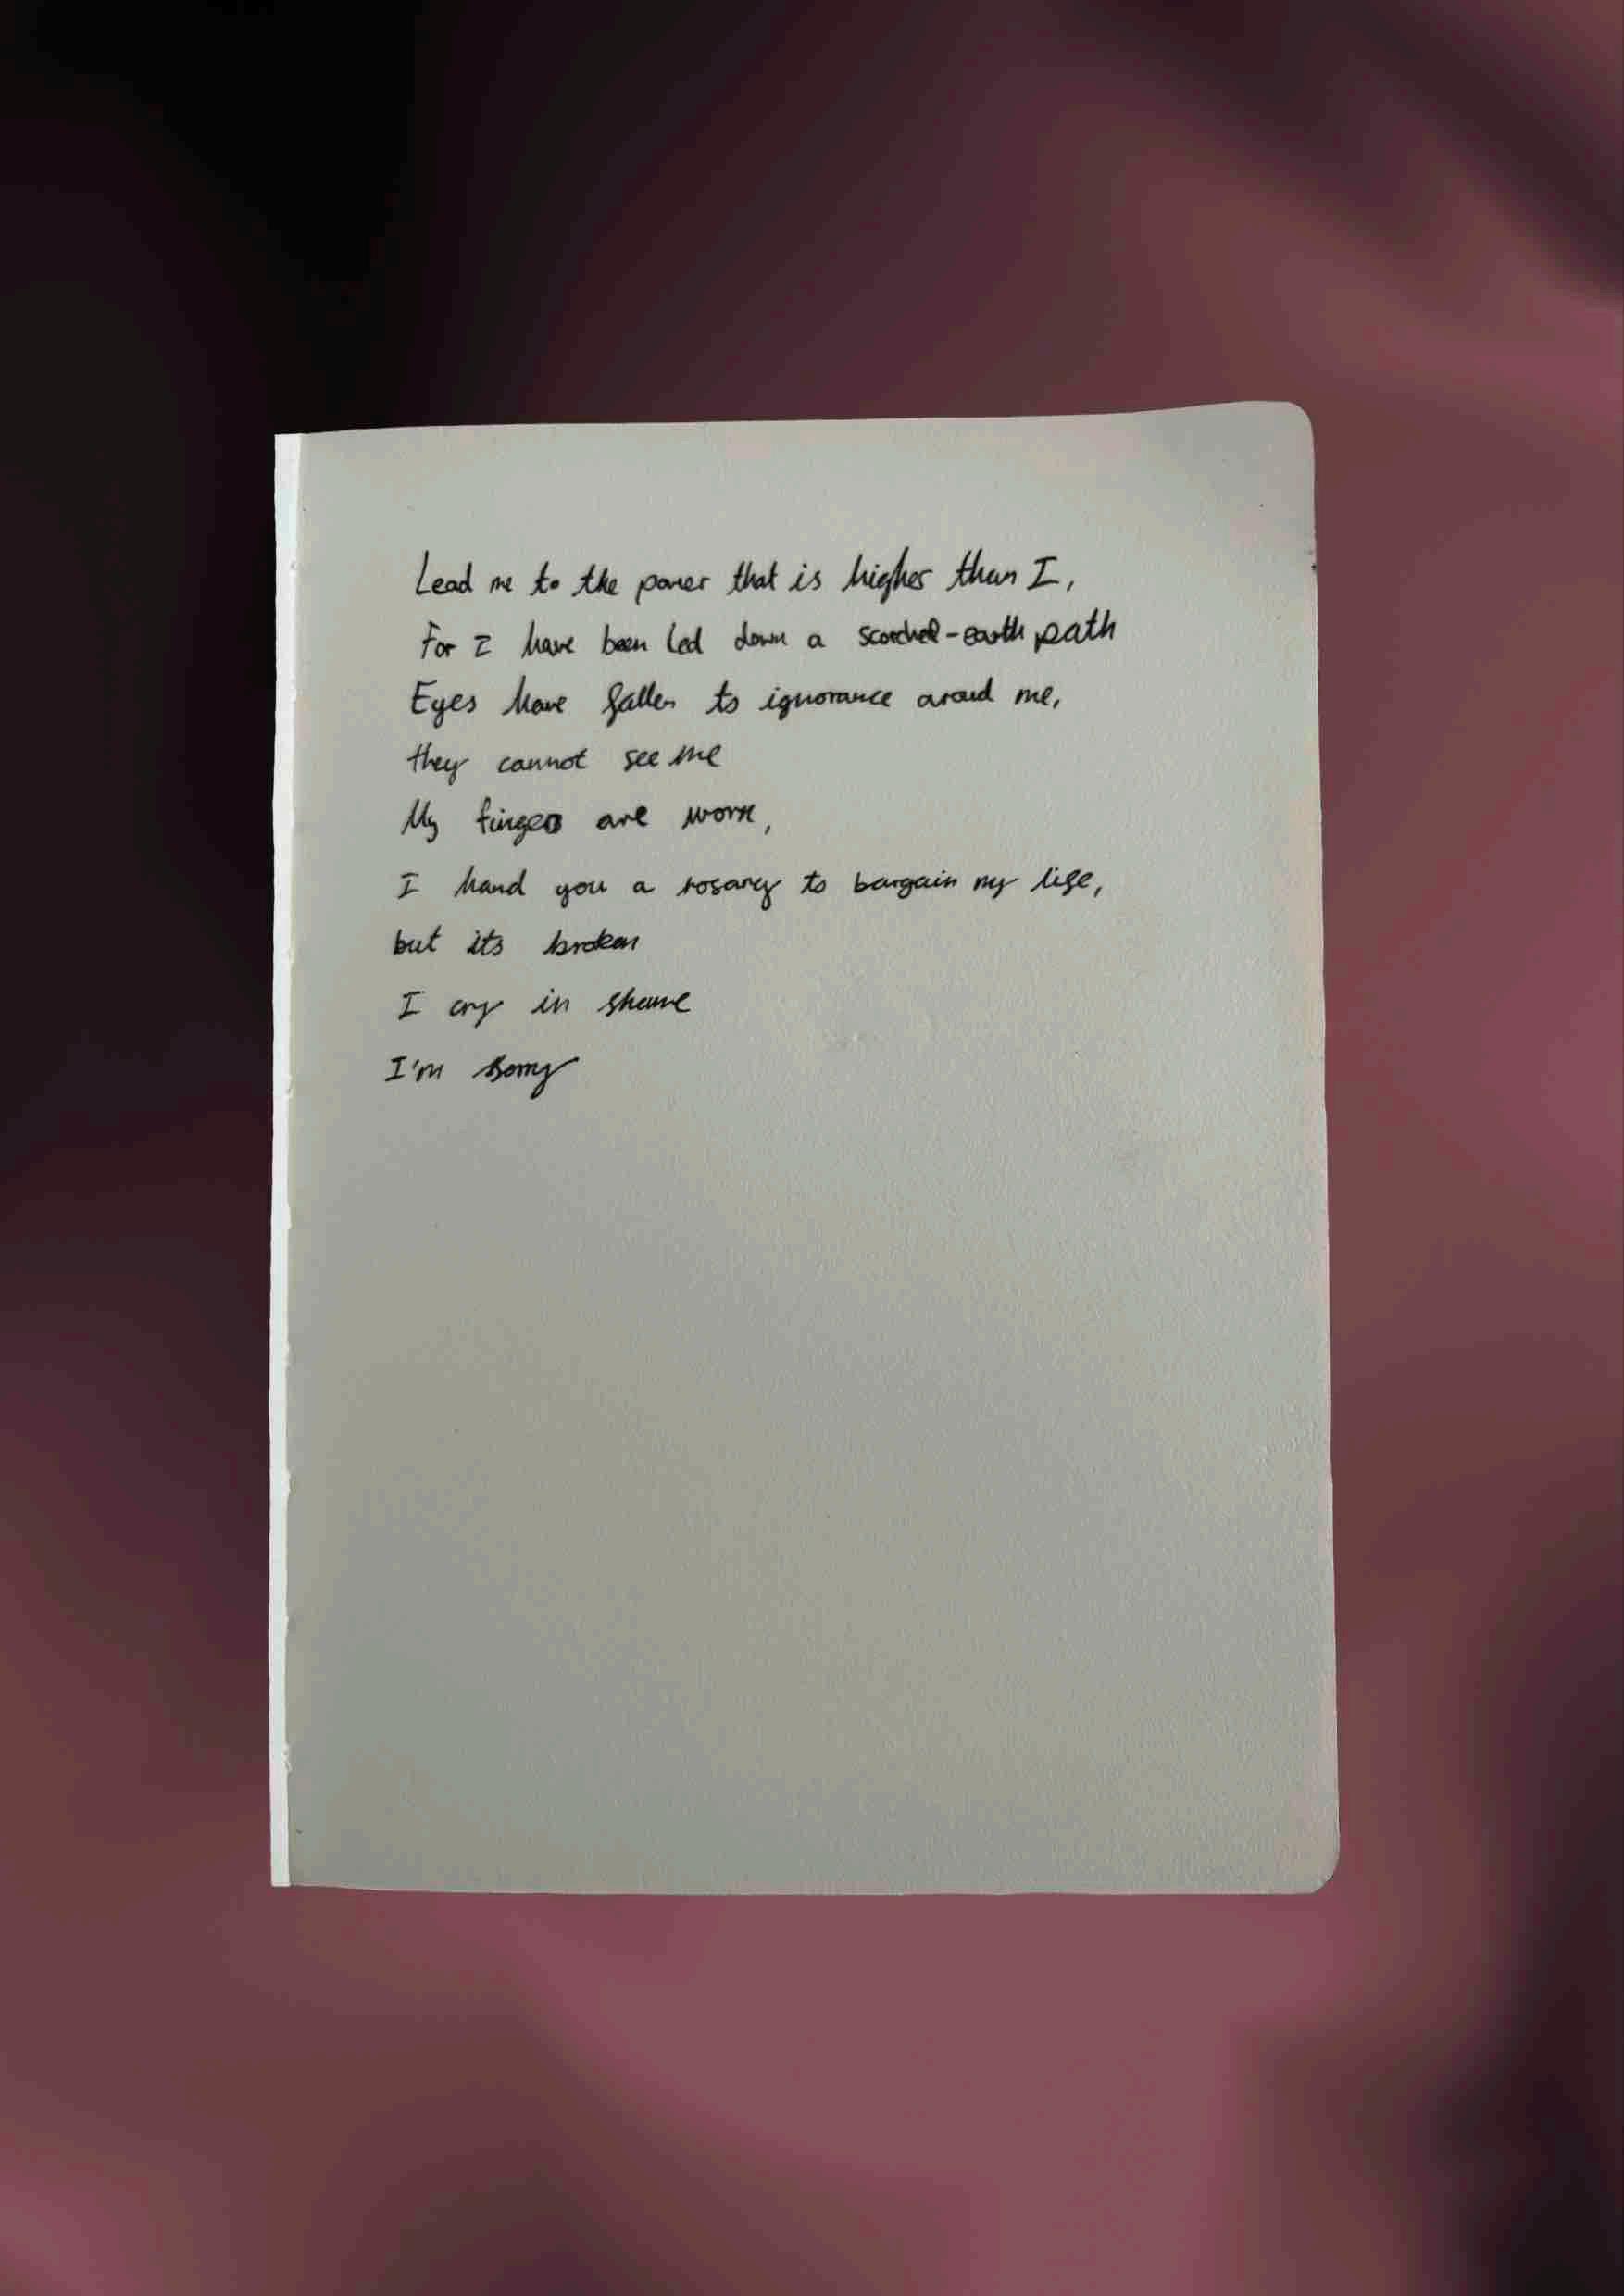 Lead me to the power that is higher than I,
For I have been led down a scorched-earth path
Eyes have fallen to ignorance around me,
they cannot see me
My fingers are worn,
I hand you a rosary to bargain my life,
but its broken
I cry in shame
I'm sorry